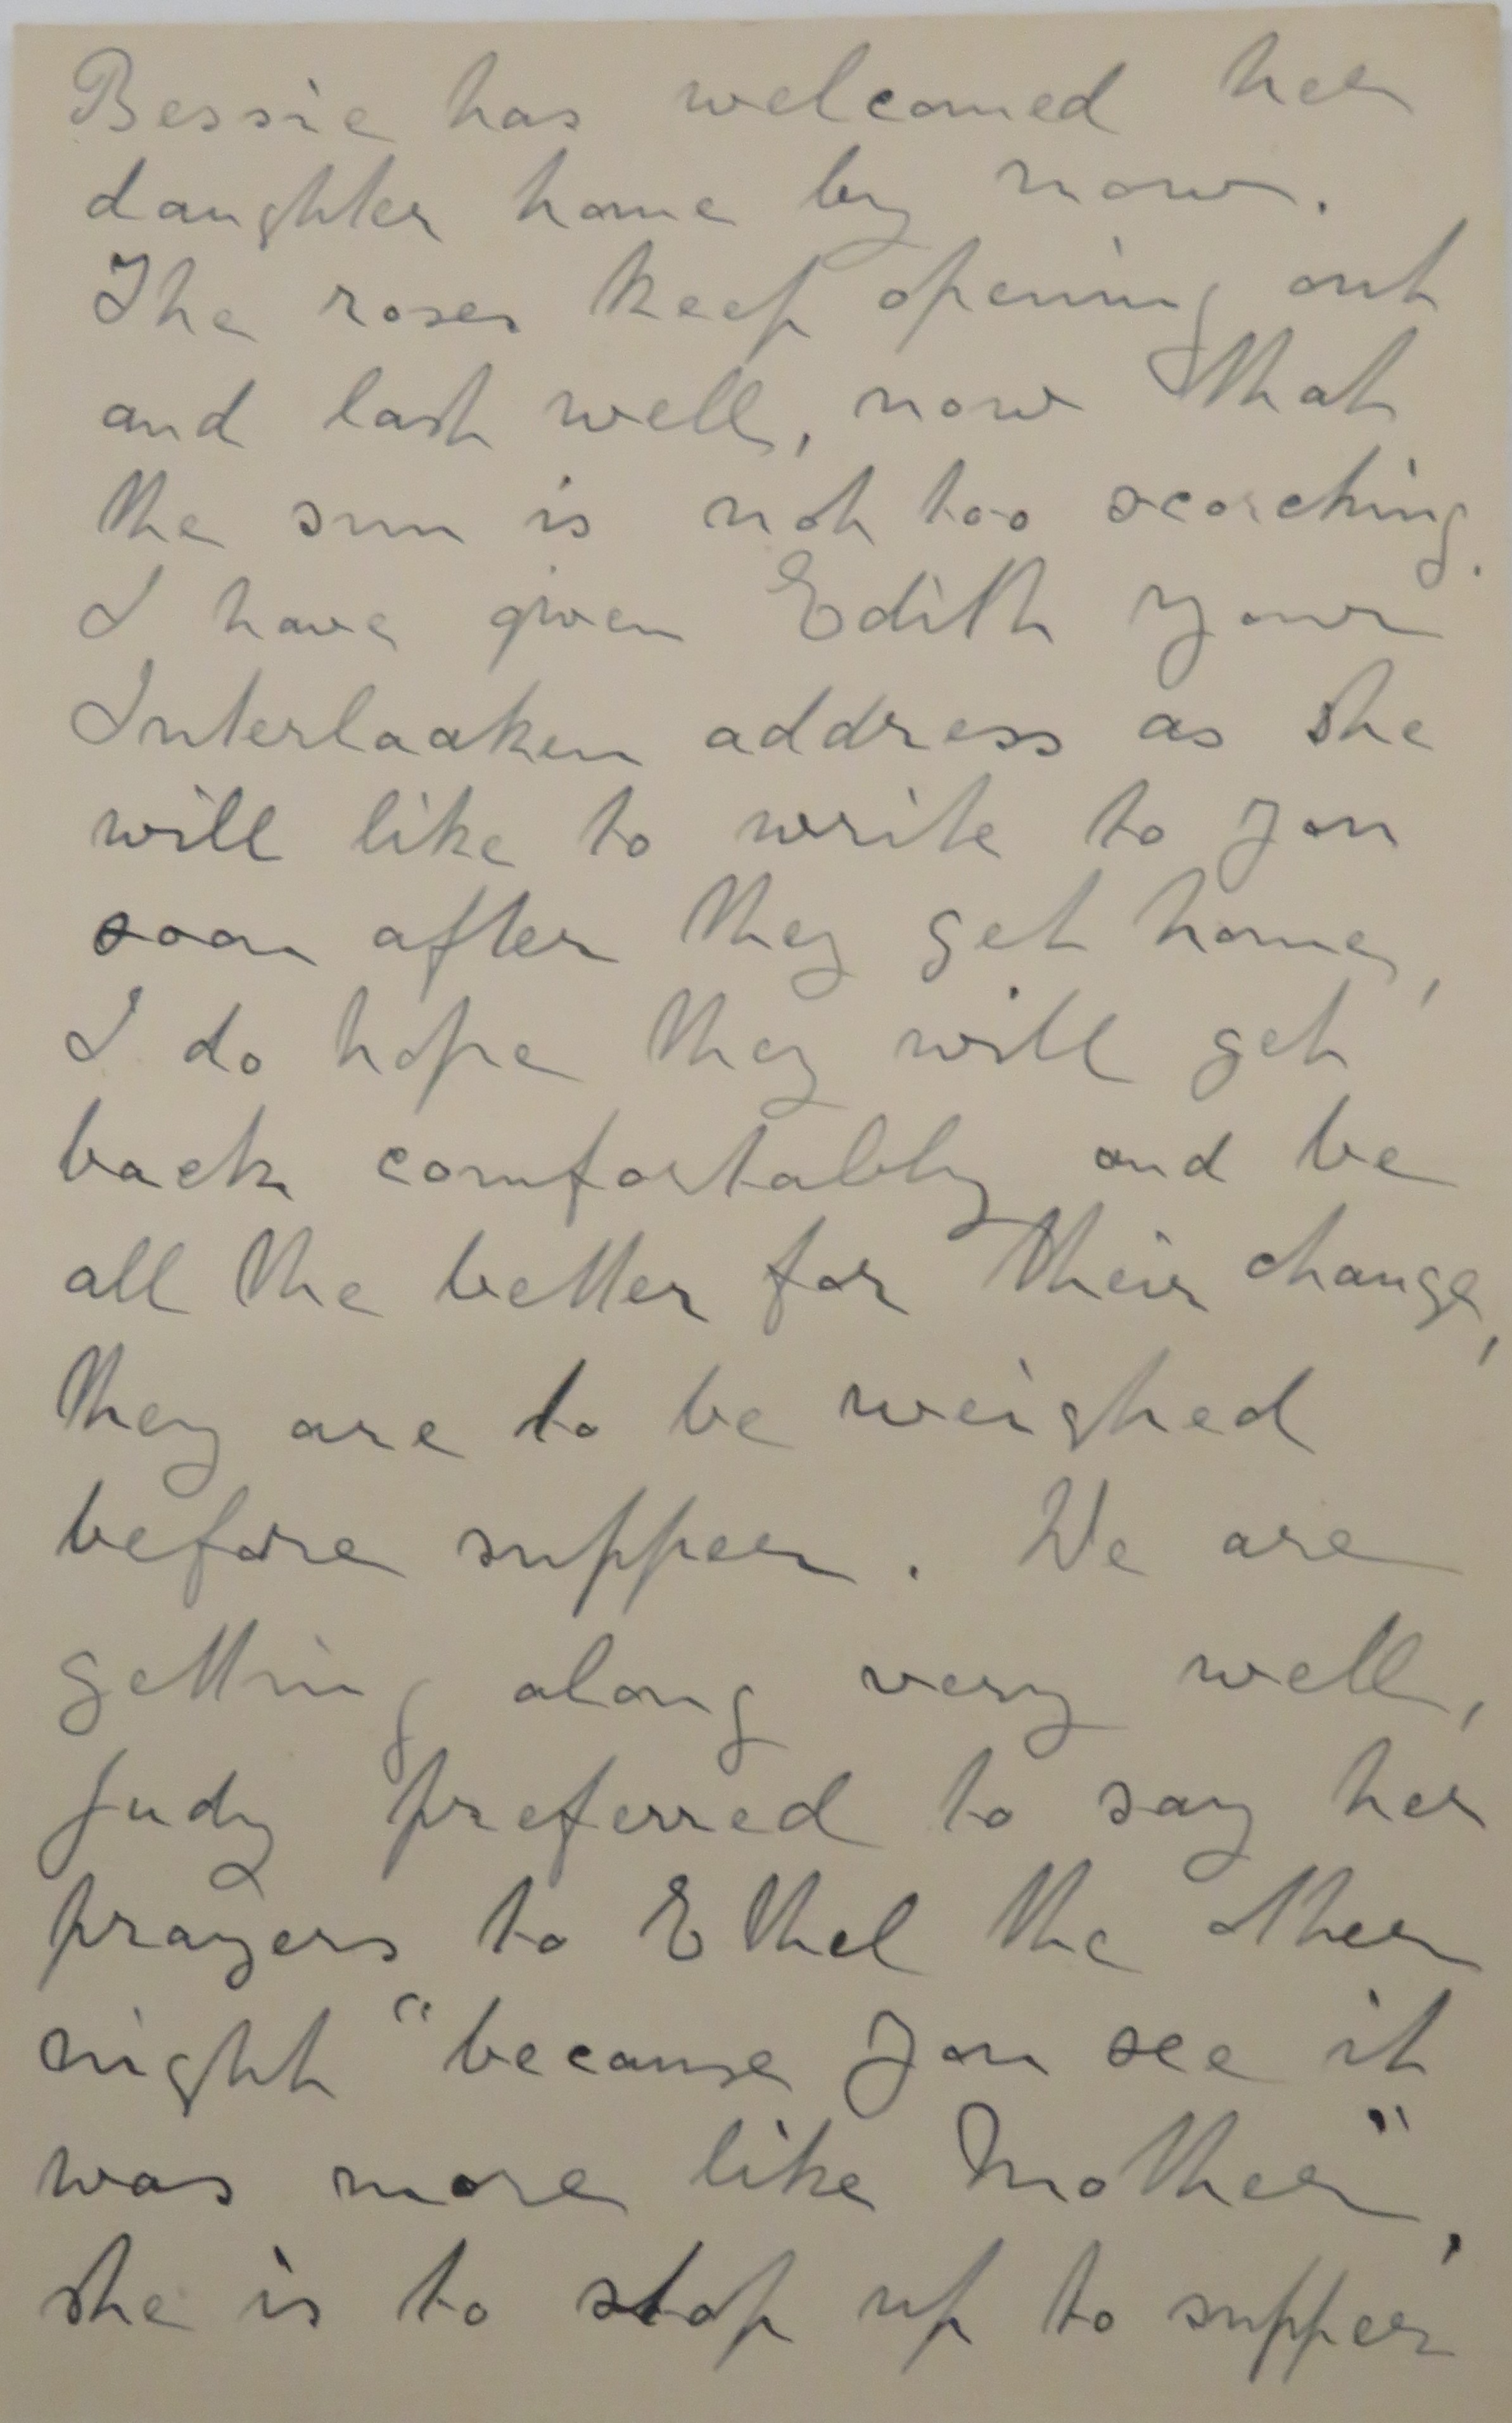 Bessie has welcomed her
daughter home by now.
The roses keep opening out
and last well, now that
the sun is not too scorching.
I have given Edith your
Interlaaken address as she
will like to write to you
soon after they get home,
I do hope they will get
back comfortably and be
all the better for their change,
they are to be weighed
before supper. We are
getting along very well,
Judy preferred to say her
prayers to Ethel the other
night "because you see it
was more like Mother",
she is to stop up to supper